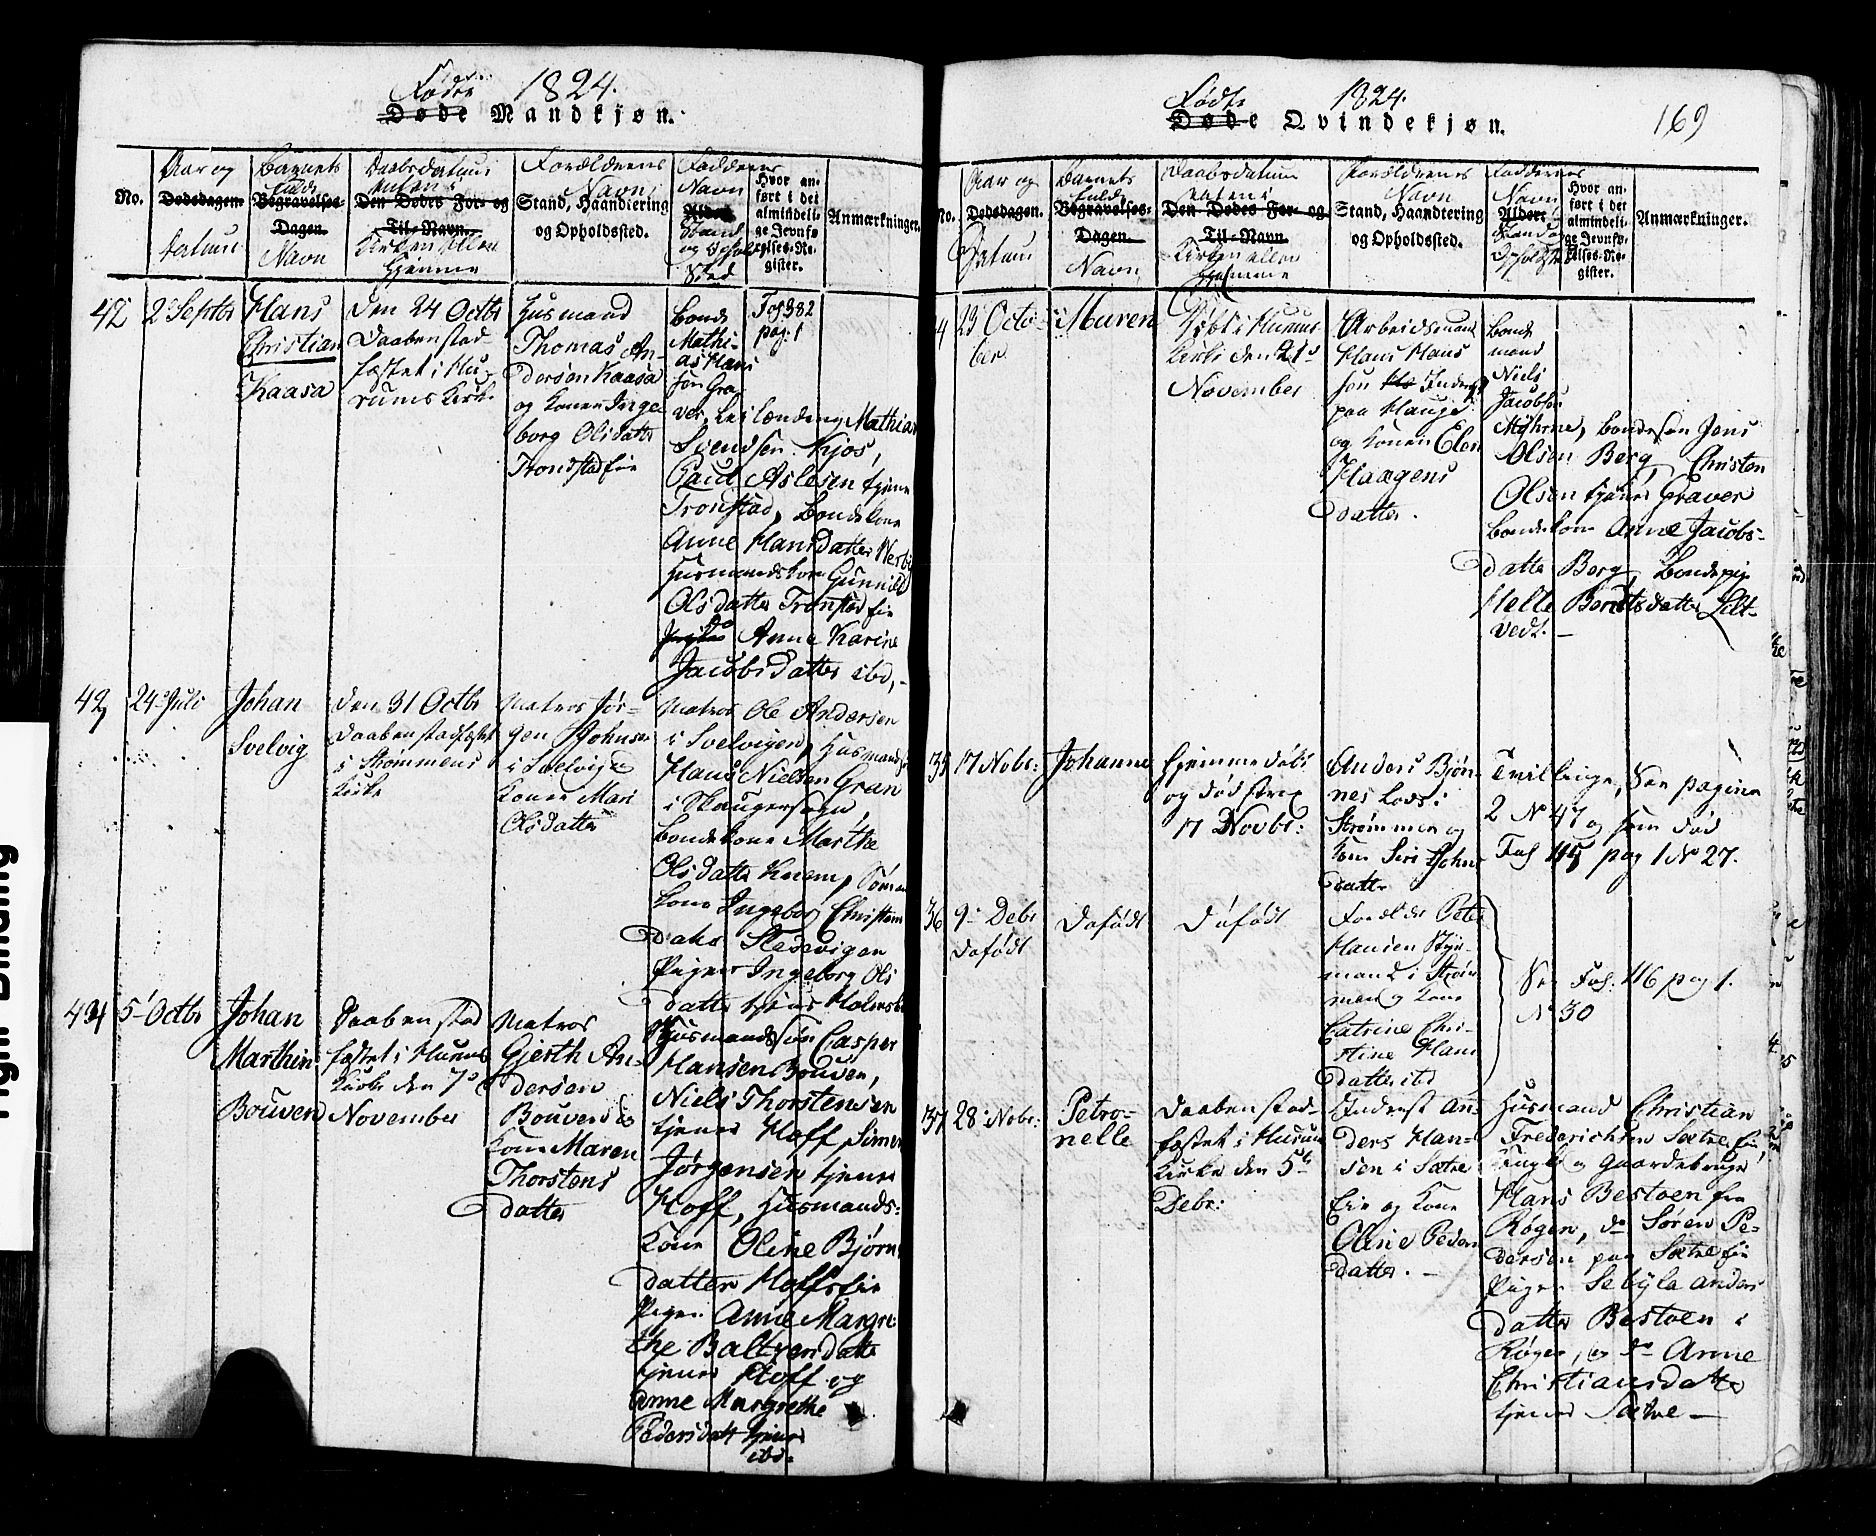 Fødte 1824.
Døde Mandkjøn.
No.
Aar og
Dødsdagen.
Datum
Barnets
fulde
Begravelses-
Dagen.
Navn
Daabsdatum
enten i
Den Dødes For- og
Til-Navn.
Kirken eller
hjemme
Forældrenes
Navn,
Stand, Haandtering
og Opholdsted.
Faddernes
Navn
Alder
Stand
og Ophold
Sted
Hvor an-
ført i det
almindeli-
ge Jevnfø-
relses-Re-
gister.
Anmærkninger.
42
2 Septbr
Hans
Christian
Kaasa
den 24 Octbr
Daaben stad-
fæstet i Hu-
rums Kirke
Husmand
Thomas An-
dersen Kaasa
og Konen Inge
borg Olsdatter
Tronstadeie
Fol 382
pag: 1
Bonde
Mathi-
as Hans
søn Gra-
ver, Leilænding Mathias
Svendsen Kjos,
Paul Aslesen tjener
Tronstad, Bondekone
Anne Hansdatter Nerby
Husmandskone Gunnild
Olsdatter Tronstadeie
Anne Karine
Jacobsdatter ibd,-
42
24 Juli
Johan
Svelvig
den 31 Octbr
Daaben stadfæstet
i Strømmens
Kirke
Matros Jør-
gen Johnsen
i Svelvigen
Konen Mari
Olsdatter
Matros Ole Andersen
i Svelvigen, Husmand
Hans Nielsen Gran
i Skauger Sogn
Bondekone Marthe
Olsdatter Knem, Sømands
Kone Ingebor Christens
datter Stedevigen
Pigen Ingeborg Ols
datter tjener Holmsbo
434
5 Octbr
Johan
Marthin
Bouven
Daaben stad
fæstet i Hurums
Kirke den 7
November
Matros
Gjerth An-
dersen
Bouven og
Kone Maren
Thorstens
datter
Husmandssøn Casper
Hansen Bouven,
Niels Thorstensen
tjener Hoff, Simen
Jørgensen tjener
Hoff, Husmands-
Kone Oline Bjørns
datter Hoffseie
Pigen Anne Margre-
the Baltzersdatter
tjener Hoff og
Anne Margrethe
Pedersdatt tjener
ibd-
Fødte 1824.
Døde Qvindekjøn.
169
No.
Aar og
Dødsdagen.
Datum
Barnets
fulde
Begravelses-
Dagen.
Navn
Daabsdatum
enten i
Den Dødes For- og
Til-Navn.
Kirken eller
hjemme
Forældrenes
Navn
Stand, Haandtering
og Opholdsted.
Faddernes
Navn
Alder.
Stand og
Opholdsted
Hvor an-
ført i det
almindeli-
ge Jevnfø-
relses-Re-
gister.
Anmærkninger.
4
23 Octo-
ber
Maren
Døbt i Hurums
Kirke den 21
November
Arbeidsmand
Hans Hans
søn Inderst
paa Hauge
og Konen Elen
Haagens
datter.
Bonde
mand
Niels
Jacobsen
Myhrene, Bondesøn Jens
Olsen Berg, Christen
Olsen tjener Graver
Bondekone Anne Jacobs-
datter Berg, Bondepige
Helle Berntsdatter Lilt-
vedt.-
35
17 Nobr:
Johanne
hjemmedøbt
og død strax
17 Novbr:
Anders Bjør-
nes Lods i
Strømmen og
Kone Siri Johns
datter
Tvillinge, See pagina
2 No 47 og som død
Fol 115 pag 1 No 27.
36
9 Debr
Dødfødt
Dødfødt
Dødfødt
Forældre Peter
Hansen Styr-
mand i Strøm-
men og Kone
Catrine Chri-
stine Hans
datter ibd
See Fol: 116 pag 1.
No 30
37
28 Nobr:
Petro-
nelle
Daaben stad-
fæstet i Hurum
Kirke den 5te
Debr:
Inderst An
ders Han-
sen i Sætre
Eie og Kone
Oline Peders
datter.-
Husmand Christian
Frederichsen Sætre Eie,
Ungk og Gaardebruger
Hans Bestoen fra
Røgen, do Søren Pe-
dersen paa Sætre Eie
Pigen Sebyla Anders
datter Bestoen i
Røgen, og do Anne
Christiansdatter
tjener Sætre-